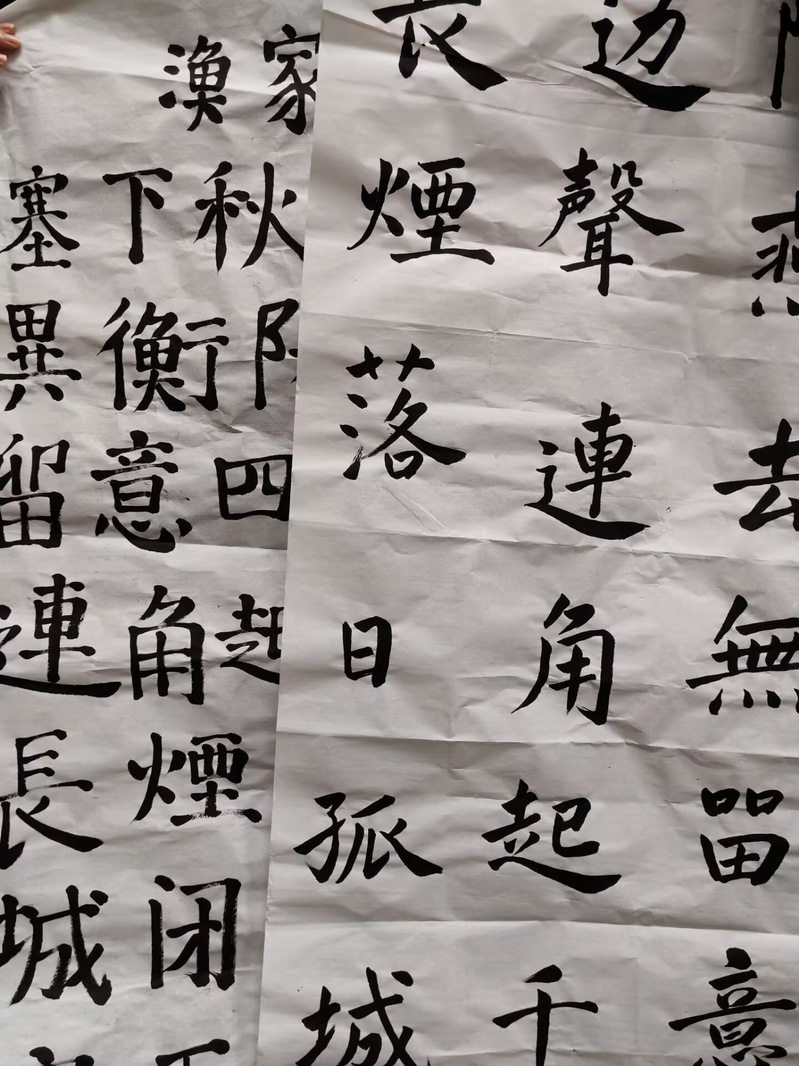 漁家
塞下秋
異衡
留意四
連角起
長煙
城闭
去無留意
边聲連角起千
長煙落日孤城